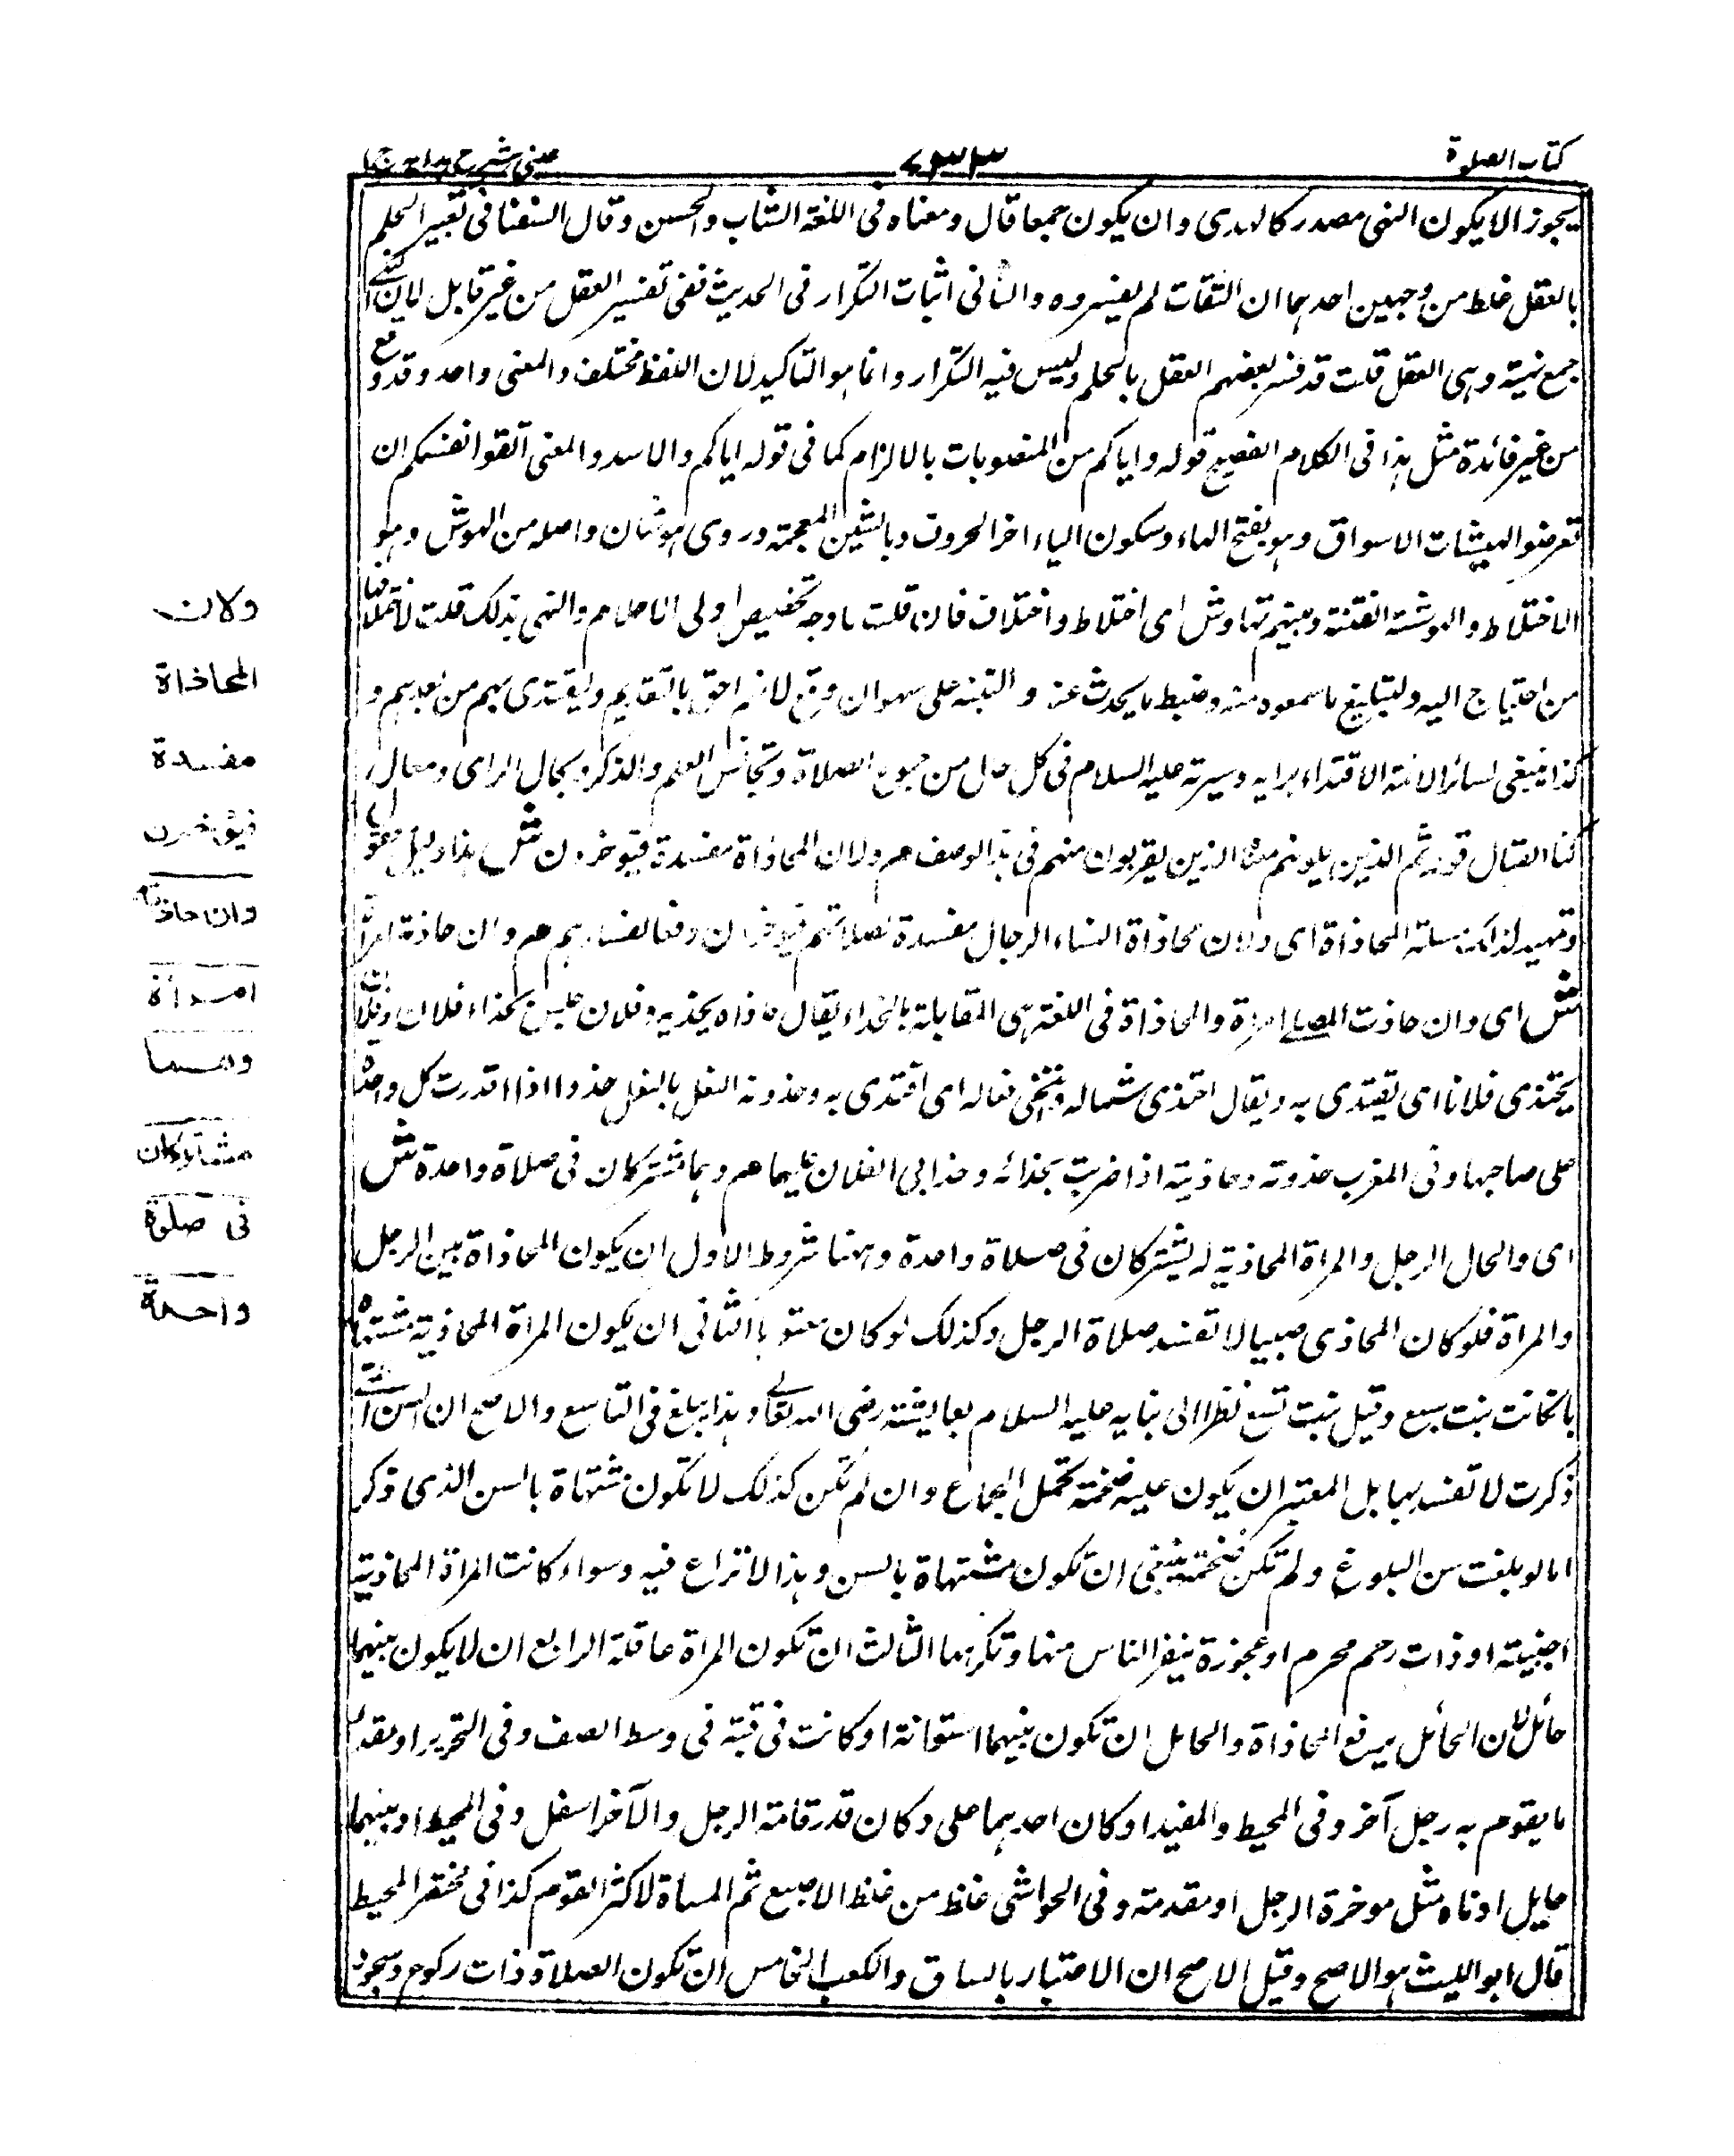 كتاب الصلوة
٧٣٣
عينى شرح هداية ج ا
يجوز الا يكون النهى مصدر كالهدى وان يكون جمعا قال ومعناه فى اللغة الثبات والحبس وقال السغناقى تعبير الحلم
بالعقل غلط من وجهين احدهما ان الثقات لم يفسروه والثانى اثبات التكرار فى الحديث ففى تفسير العقل من غير قابل لان النهى
جمع نهية وهى العقل قلت قد فسر بعضهم العقل بالحلم وليس فيه التكرار وانما هو التاكيد لان اللفظ مختلف والمعنى واحد وقد وقع
من غير فائدة مثل هذا فى الكلام الفصيح قوله واياكم من المنصوبات بالالزام كما فى قوله اياكم والاسد والمعنى اتقوا نفسكم ان
تعرضوا لهيشات الاسواق وهو بفتح الهاء وسكون الياء اخر الحروف وبالشين المعجمة وروى هوشات واصله من الهوش وهو
الاختلاط والهوشة الفتنة وبينهم تهاوش اى اختلاط واختلاف فان قلت ما وجه تخصيص اولى الاحلام والنهى بذلك قلت
من احتياج اليه ولتبليغ ما سمعوه منه وضبط ما يحدث عنه والتنبه على سهو ان وقع لانهم احق بالتقديم وليقتدى بهم من بعدهم و
كذا ينبغى لسائر الائمة الاقتداء برايه وسيرته عليه السلام فى كل حال من جموع الصلاة وتجانس العلم والذكر وبحال الراى ومعال
كنا القتال قوله ثم الذين يلونهم معناه الذين يقربون منهم فى هذا الوصف هم ولان المحاذاة مفسدة فيوخرون ش هذا دليل معقول
وتمهيد لذكر مسئلة المحاذاة اى ولان محاذاة النساء الرجال مفسدة لصلاتهم فيوخرن دفعا لفسادهم هم وان حاذته امراة
ش اى وان حاذت المصلى امراة والمحاذاة فى اللغة هى المقابلة بالحذاء يقال حاذاه يحذيه وفلان جلس بحذاء فلان وفلان
يحتذى فلانا اى يقتدى به ويقال احتذى شماله وانتحى فعاله اى اقتدى به وحذوته النعل بالنعل حذوا اذا قدرت كل واحدة
على صاحبها وفى المغرب حذوته وحاذيته اذا ضربت بحذائه وحذا بى الفلان عليهما هم وهما مشتركان فى صلاة واحدة ش
اى والحال الرجل والمراة المحاذية له يشتركان فى صلاة واحدة وههنا شروط الاول ان يكون المحاذاة بين الرجل
والمراة فلو كان المحاذى صبيا لا تفسد صلاة الرجل وكذلك لو كان معتوها الثانى ان يكون المراة المحاذية مشتهاة
بان كانت بنت سبع وقيل بنت تسع نظرا الى بنايه عليه السلام بعايشة رضى الله تعالى وهذا يبلغ فى التاسع والاصح ان السن التى
ذكرت لا تفسد بها بل المعتبر ان يكون عبلة ضخمة تحتمل الجماع وان لم تكن كذلك لا تكون مشتهاة بالسن الذى ذكر
اما لو بلغت سن البلوغ ولم تكن ضخمة ينبغى ان تكون مشتهاة بالسن وهذا لا نزاع فيه وسواء كانت المراة المحاذية
اجنبية او ذات رحم محرم او عجوزة ينفر الناس منها وتكرهها الثالث ان تكون المراة عاقلة الرابع ان لا يكون بينهما
حائل لان الحائل يرفع المحاذاة والحائل ان تكون بينهما استوانة او كانت فى قبة فى وسط الصف وفى التحرير او مقدار
ما يقوم به رجل آخر وفى المحيط والمفيد او كان احدهما على دكان قدر قامة الرجل والآخر اسفل وفى المحيط او بينهما
حايل ادناه مثل موخرة الرحل او مقدمته وفى الحواشى غلظ من غلظ الاصبع ثم المساة لاكثر القوم كذا فى مختصر المحيط
قال ابو الليث هو الاصح وقيل الاصح ان الاعتبار بالساق والكعب الخامس ان تكون الصلاة ذات ركوع وسجود
ولان
المحاذاة
مفسدة
فيؤخرن
وان حاذته
امرأة
وهما
مشتركان
فى صلوة
واحدة